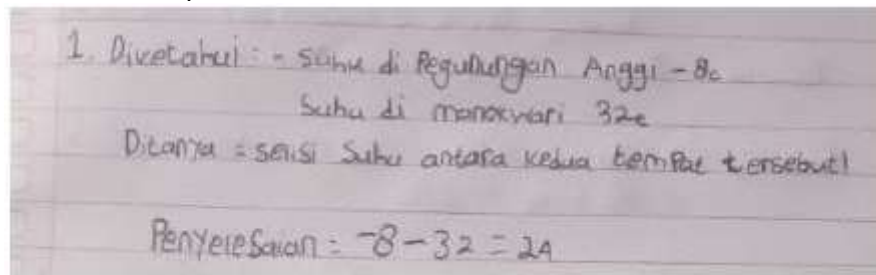 1. Diketahui : - Suhu di Pegunungan Anggi -8c
Suhu di manokwari 32c
Ditanya = selisi Suhu antara kedua tempat tersebut!
Penyelesaian = -8 - 32 = 24